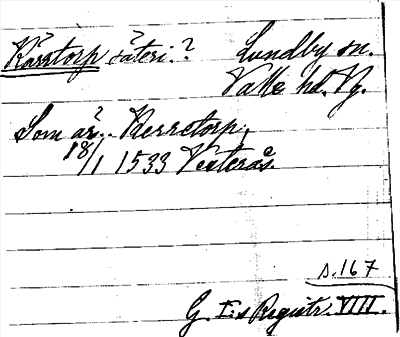 Kårtorp säteri? Lundby sn.
Valle hd. Vg.
Som är.. Kerretorp,
18/1 1533 Vesterås.
s. 167
G. I:s Registr. VIII.